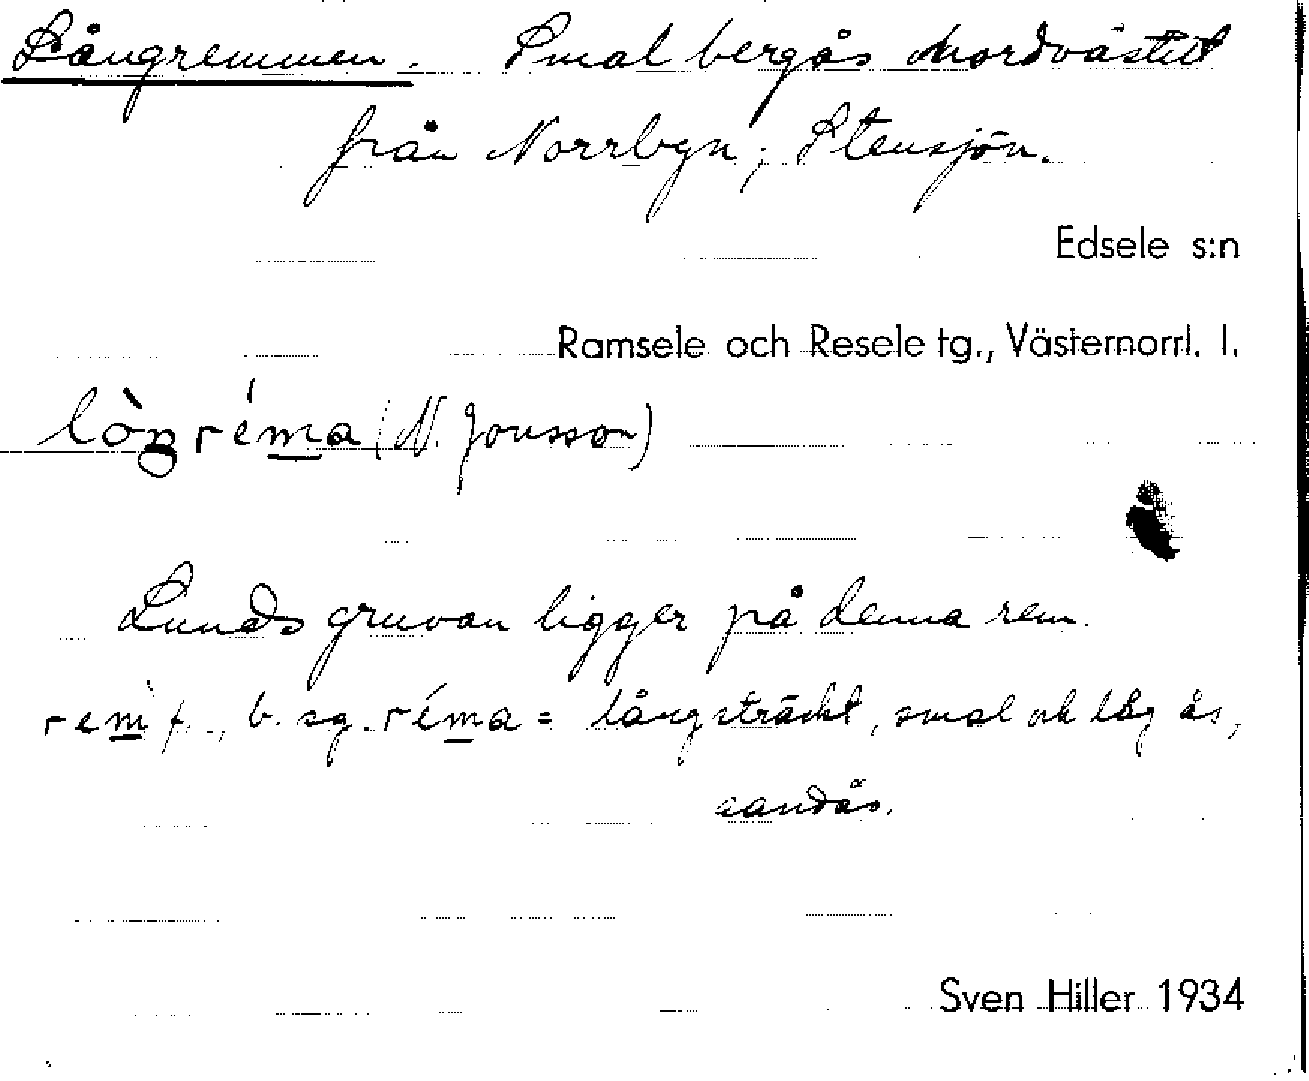 Långremmen. Smal bergås nordvästut
från Norrbyn, Stensjön.
Edsele s:n
Ramsele och Resele tg., Västernorrl. l.
lòŋréma (N. Jonsson)
Lunds gruvan ligger på denna rem.
rem f., b. sg. réma = långsträckt, smal och låg ås,
sandås.
Sven Hiller 1934